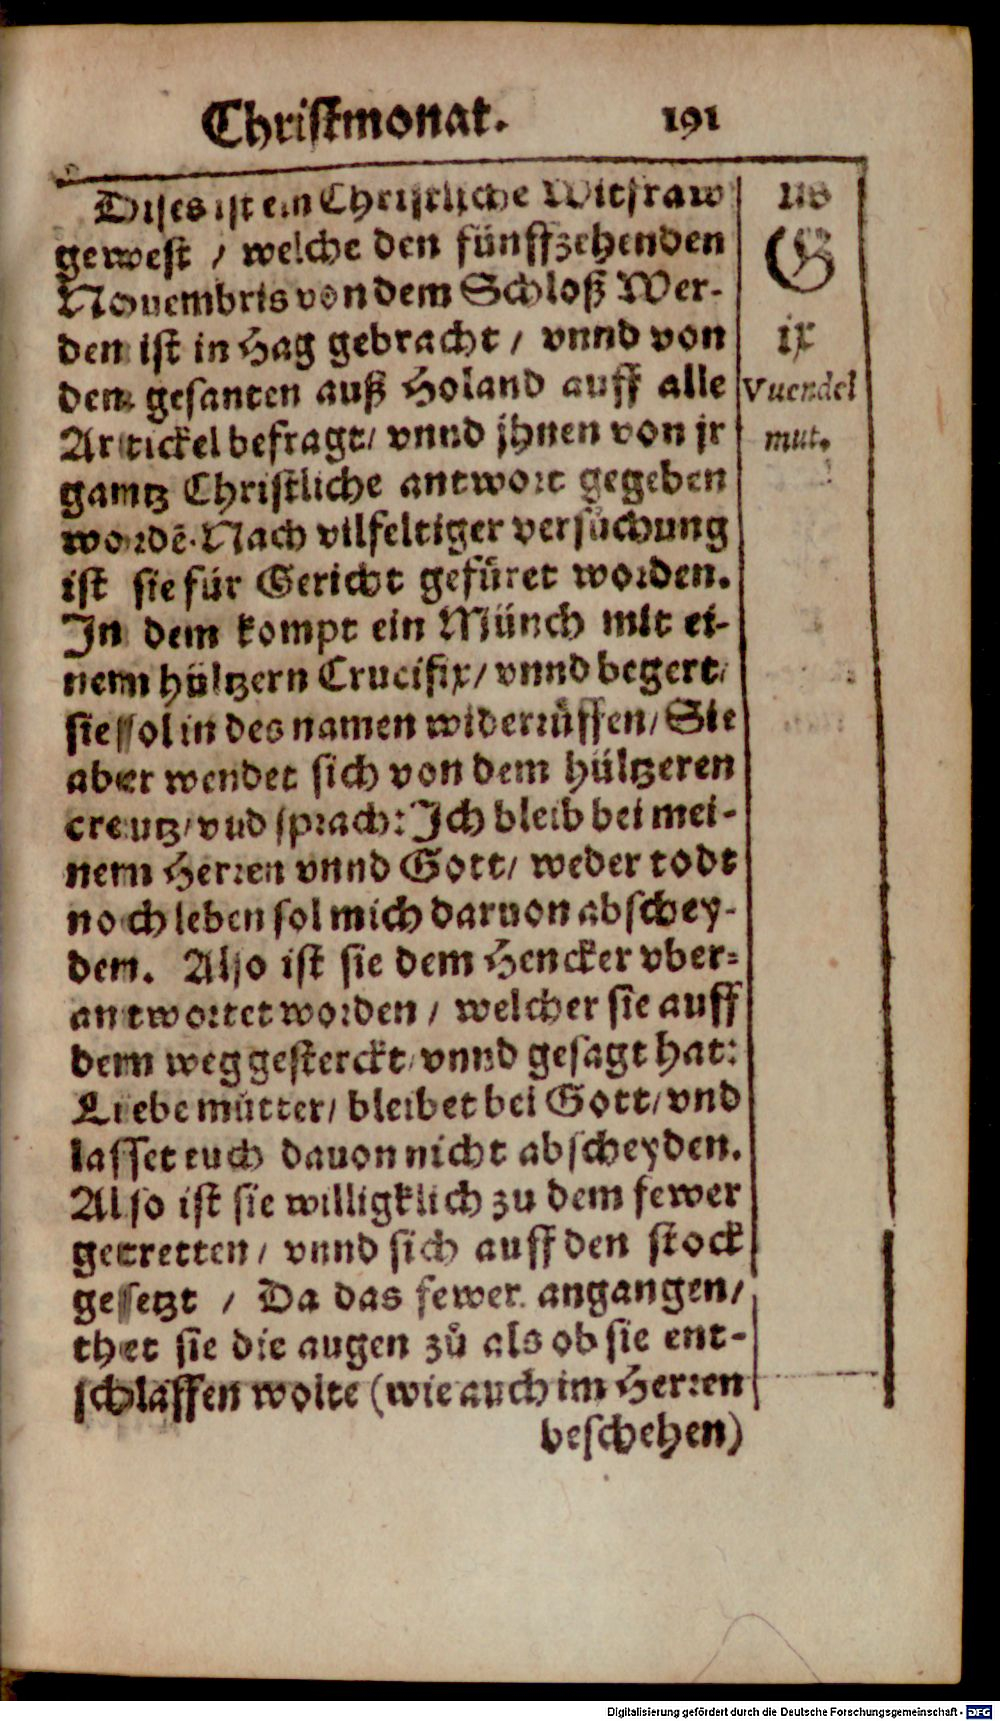 Christmonat. 191
Dises ist ein Christliche Witfraw
gewest / welche den fünffzehenden
Nouembris von dem Schloß Wer-
den ist in Hag gebracht / vnnd von
den gesanten auß Holand auff alle
Artickel befragt / vnnd jhnen von jr
gantz Christliche antwort gegeben
wordē. Nach vilfeltiger versůchung
ist sie für Gericht gefüret worden.
In dem kompt ein Münch mit ei-
nem hültzern Crucifix / vnnd begert /
sie sol in des namen widerrůffen / Sie
aber wendet sich von dem hültzeren
creutz / vnd sprach: Ich bleib bei mei-
nem Herren vnnd Gott / weder todt
noch leben sol mich daruon abschey-
den. Also ist sie dem Hencker vber-
antwortet worden / welcher sie auff
dem weg gesterckt / vnnd gesagt hat:
Liebe můtter / bleibet bei Gott / vnd
lasset euch dauon nicht abscheyden.
Also ist sie willigklich zu dem fewer
getretten / vnnd sich auff den stock
gesetzt / Da das fewer angangen /
thet sie die augen zů als ob sie ent-
schlaffen wolte (wie auch im Herren
beschehen)
G
ix
Vuendel
mut.
Digitalisierung gefördert durch die Deutsche Forschungsgemeinschaft - DFG